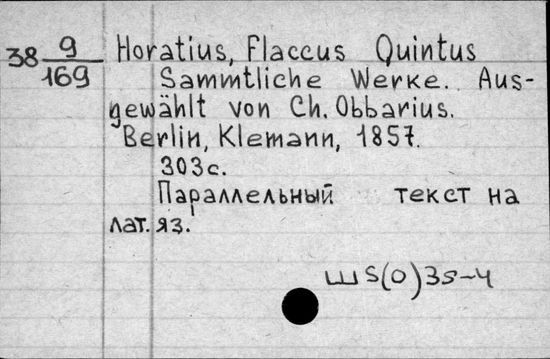 38 9/169 Horatius, Flaccus Quintus
Sammtliche Werke. Aus-
gewählt von Ch. Obbarius.
Berlin, Klemann, 1857.
303с.
Параллельный текст на
лат. яз.
Ш5(0)3s-4